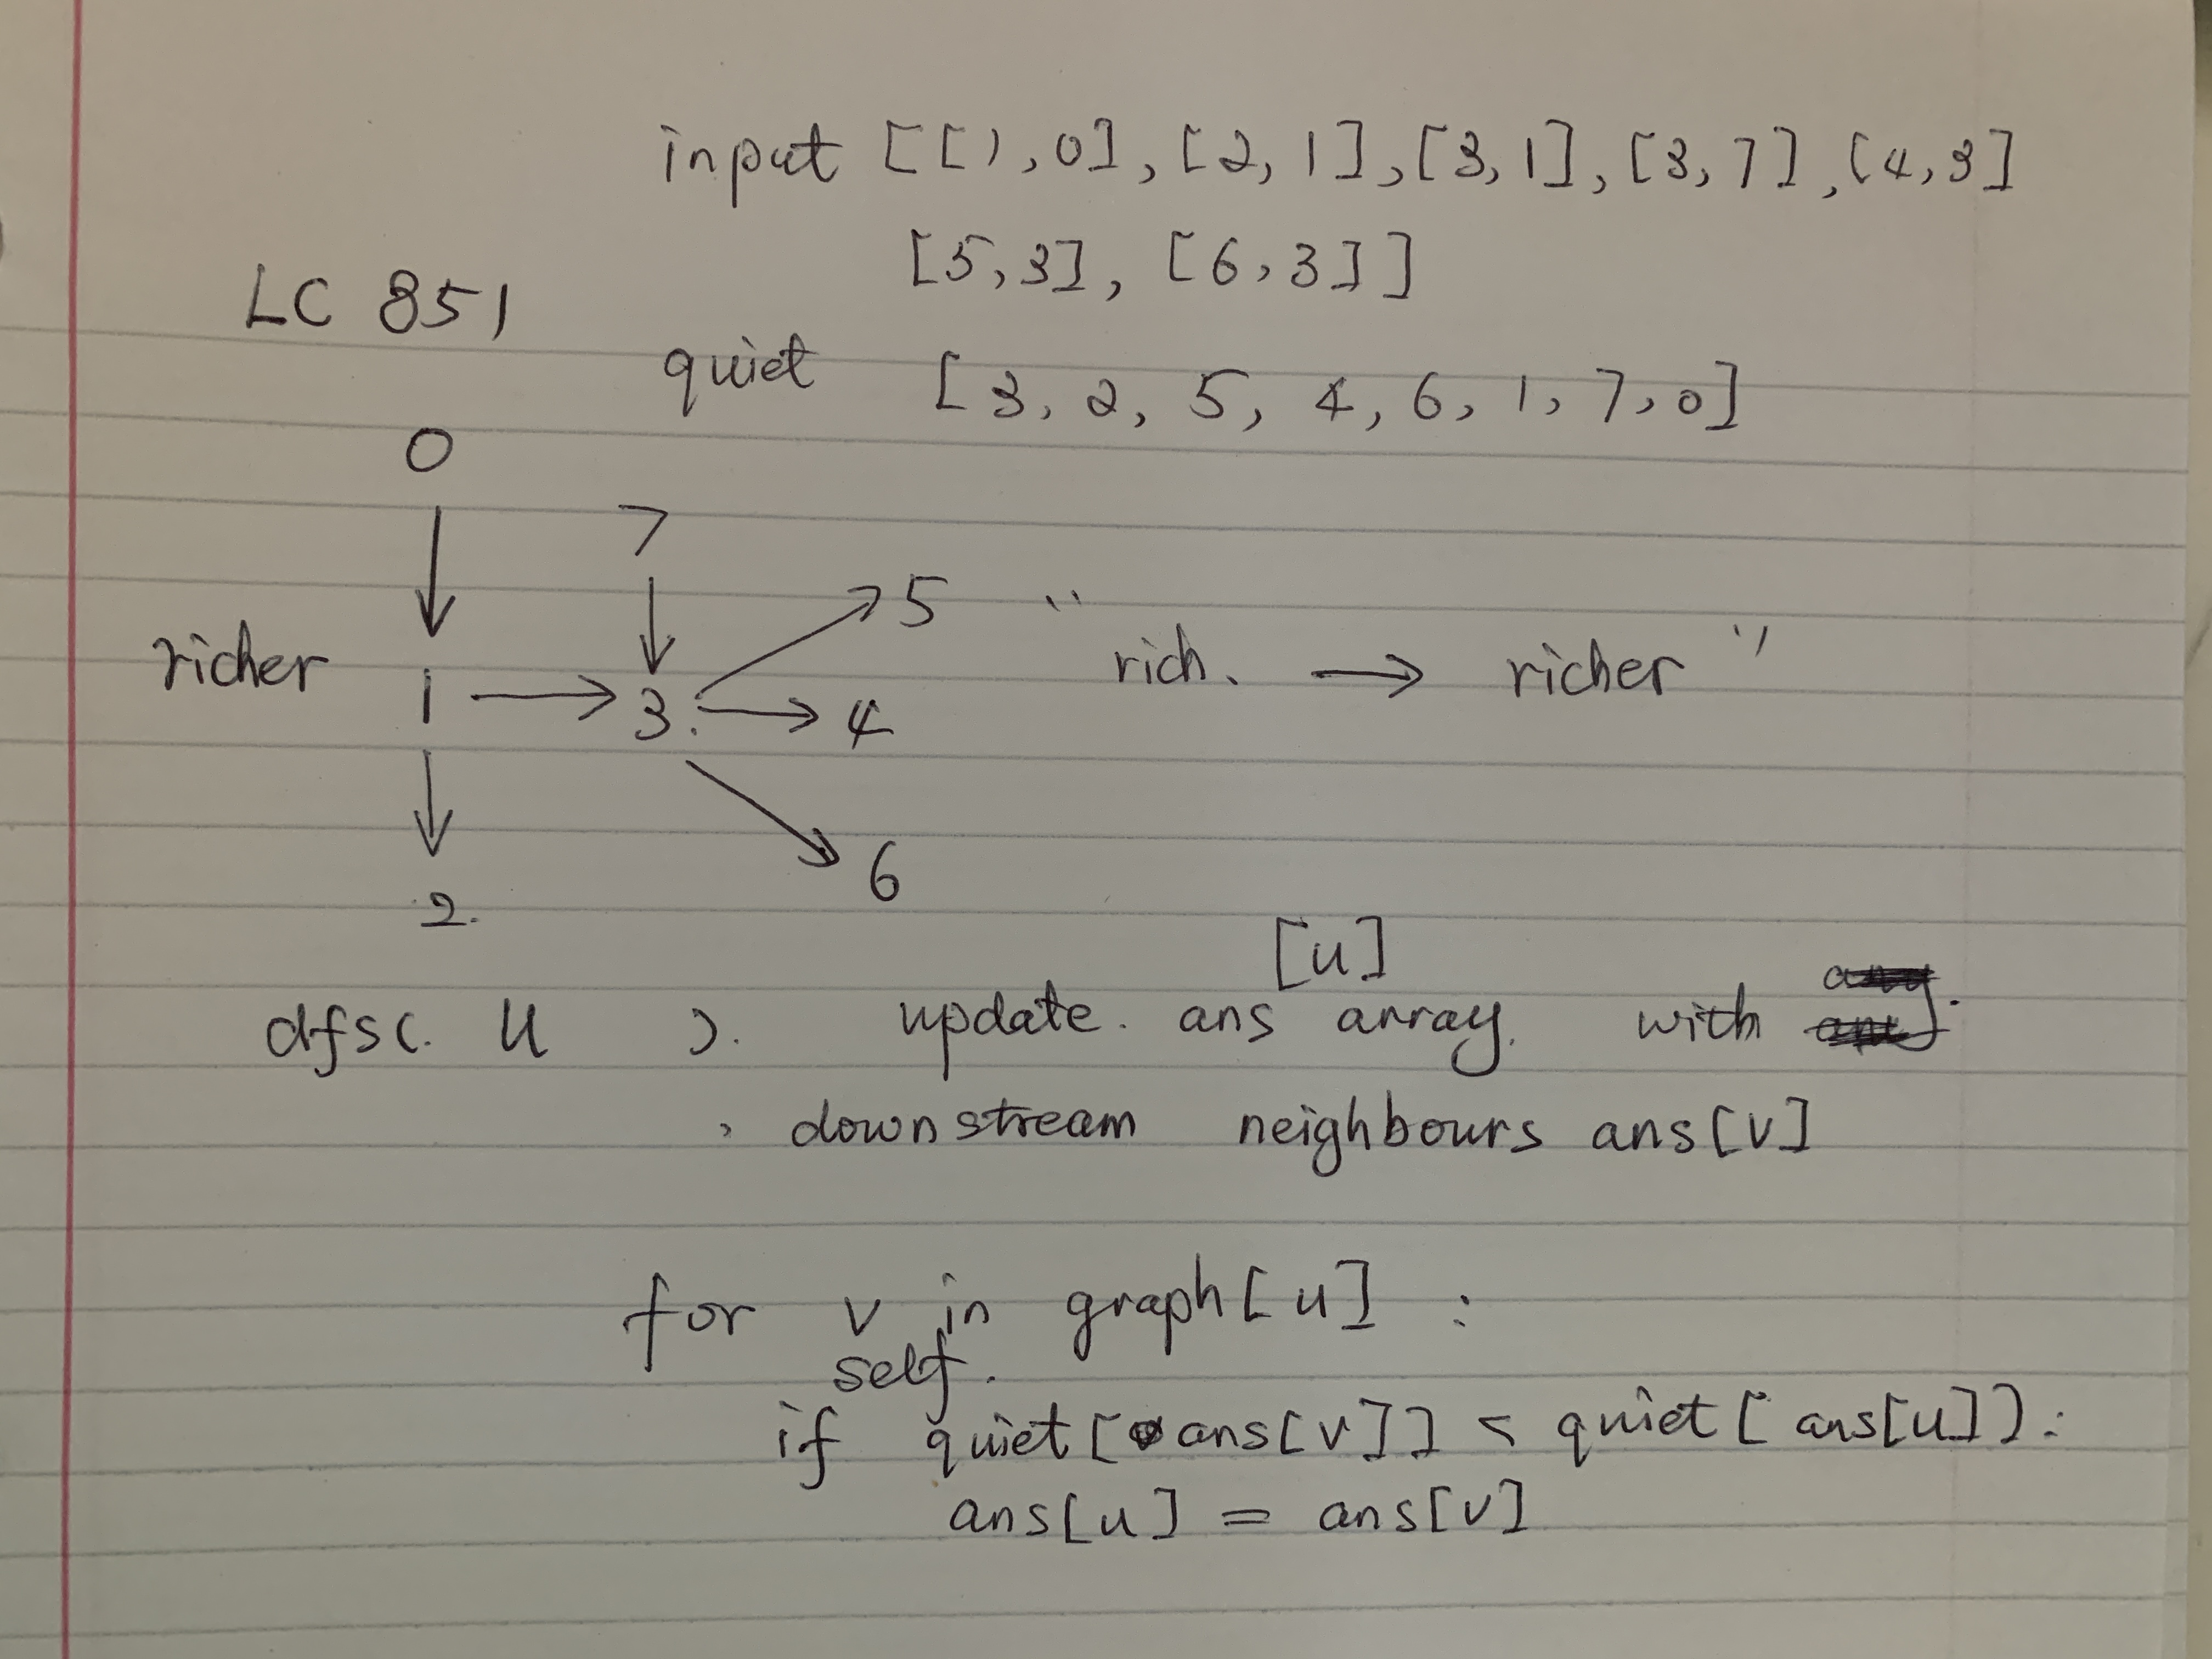 input [[1,0],[2,1],[3,1],[3,7],[4,3]
[5,3],[6,3]]
LC 851
quiet [3,2,5,4,6,1,7,0]
0
7
5
richer 1 → 3. → 4 "rich. → richer"
6
2.
[u]
dfs(. u ). update. ans array. with
, downstream neighbours ans[v]
for v in graph[u] :
self.
if quiet[ans[v]] < quiet[ans[u]]:
ans[u] = ans[v]